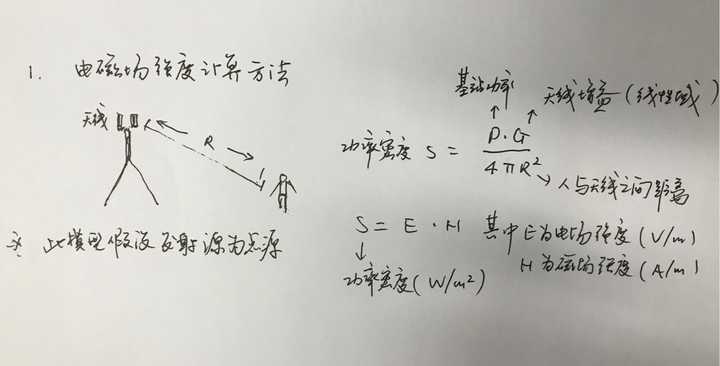 1. 电磁场强度计算方法
天线
R
基站功率
天线增益(线性域)
功率密度 S = P·G / 4πR²
人与天线之间距离
S = E · H 其中E为电场强度(V/m)
H为磁场强度(A/m)
功率密度(W/m²)
此模型假设发射源为点源